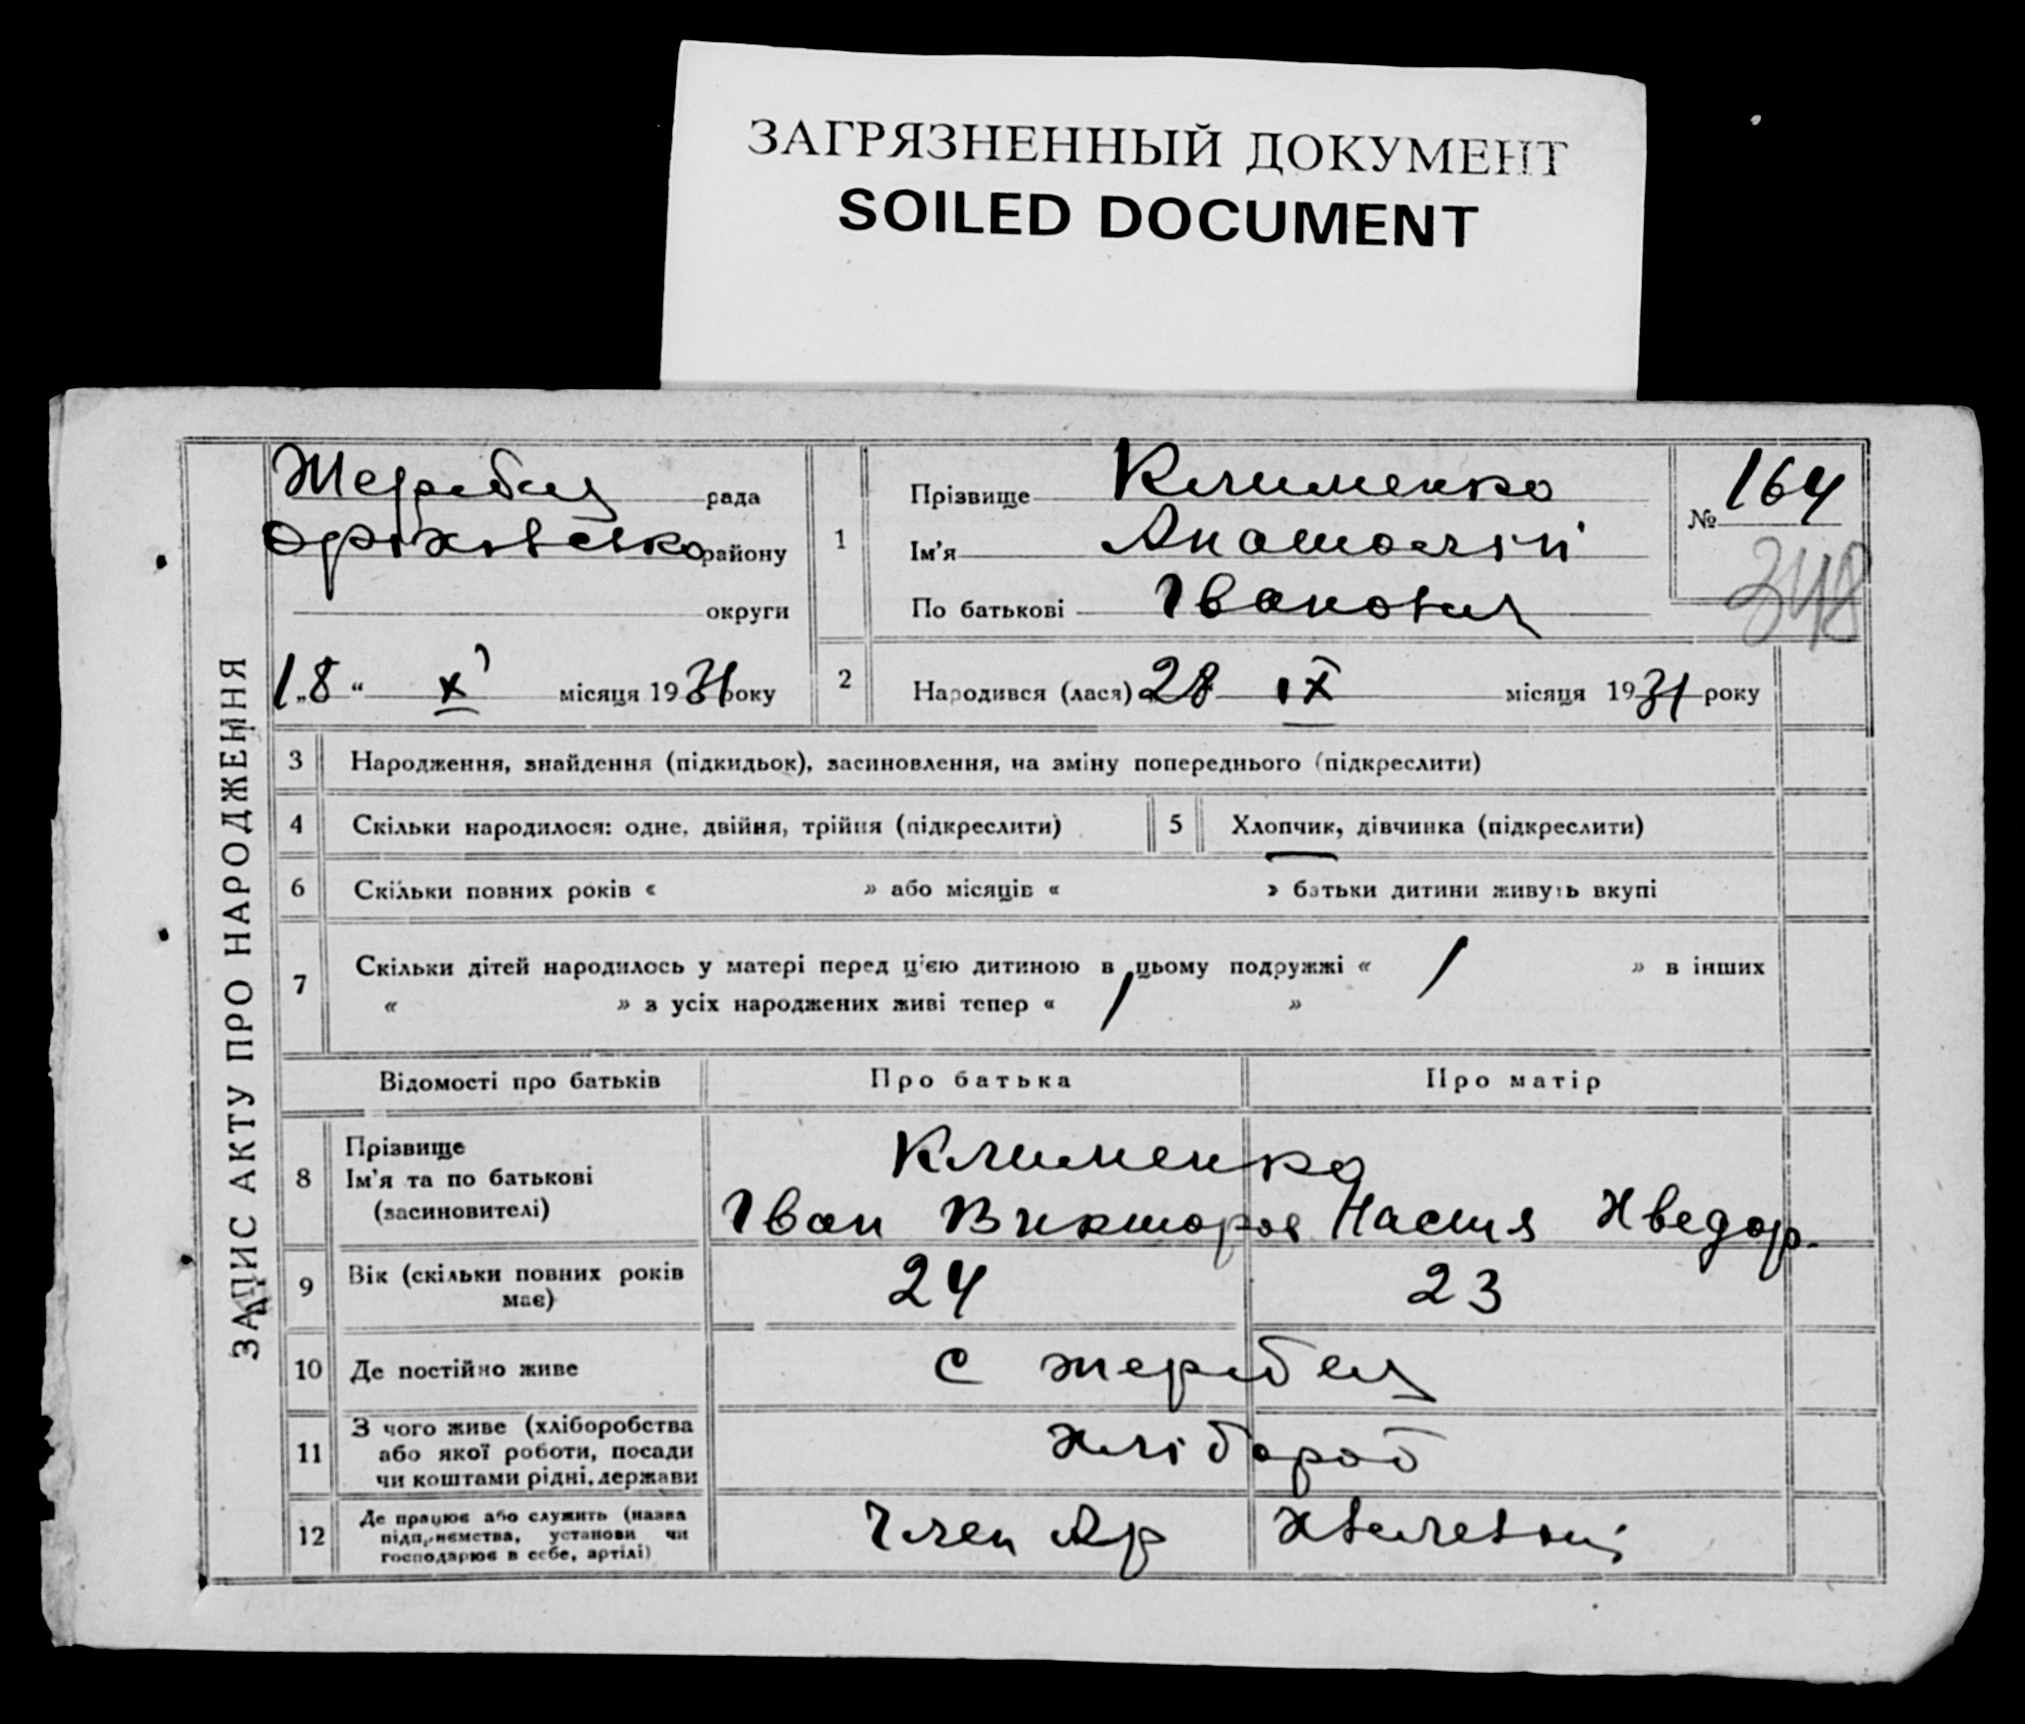 ЗАГРЯЗНЕННЫЙ ДОКУМЕНТ
SOILED DOCUMENT
ЗАПИС АКТУ ПРО НАРОДЖЕННЯ
Жеребец рада
Оріхівсько району
округи
„18“ X місяця 1931 року
1
Прізвище Клименко
Ім'я Анатолій
По батькові Іванович
№ 164
348
2
Народився (лася) „28 IX місяця 1931 року
3 Народження, знайдення (підкидьок), засиновлення, на зміну попереднього (підкреслити)
4 Скільки народилося: одне, двійня, трійня (підкреслити) 5 Хлопчик, дівчинка (підкреслити)
6 Скільки повних років « » або місяців « » батьки дитини живуть вкупі
7 Скільки дітей народилось у матері перед ц'єю дитиною в цьому подружжі « / » в інших
« » з усіх народжених живі тепер « / »
Відомості про батьків Про батька Про матір
8 Прізвище
Ім'я та по батькові
(засиновителі)
Клименко
Іван Викторов Настя Хведор.
9 Вік (скільки повних років
має)
24 23
10 Де постійно живе с жеребец
11 З чого живе (хліборобства
або якої роботи, посади
чи коштами рідні, держави
хлібороб
12 Де працює або служить (назва
підприємства, установи чи
господарює в себе, артілі)
Член Ар